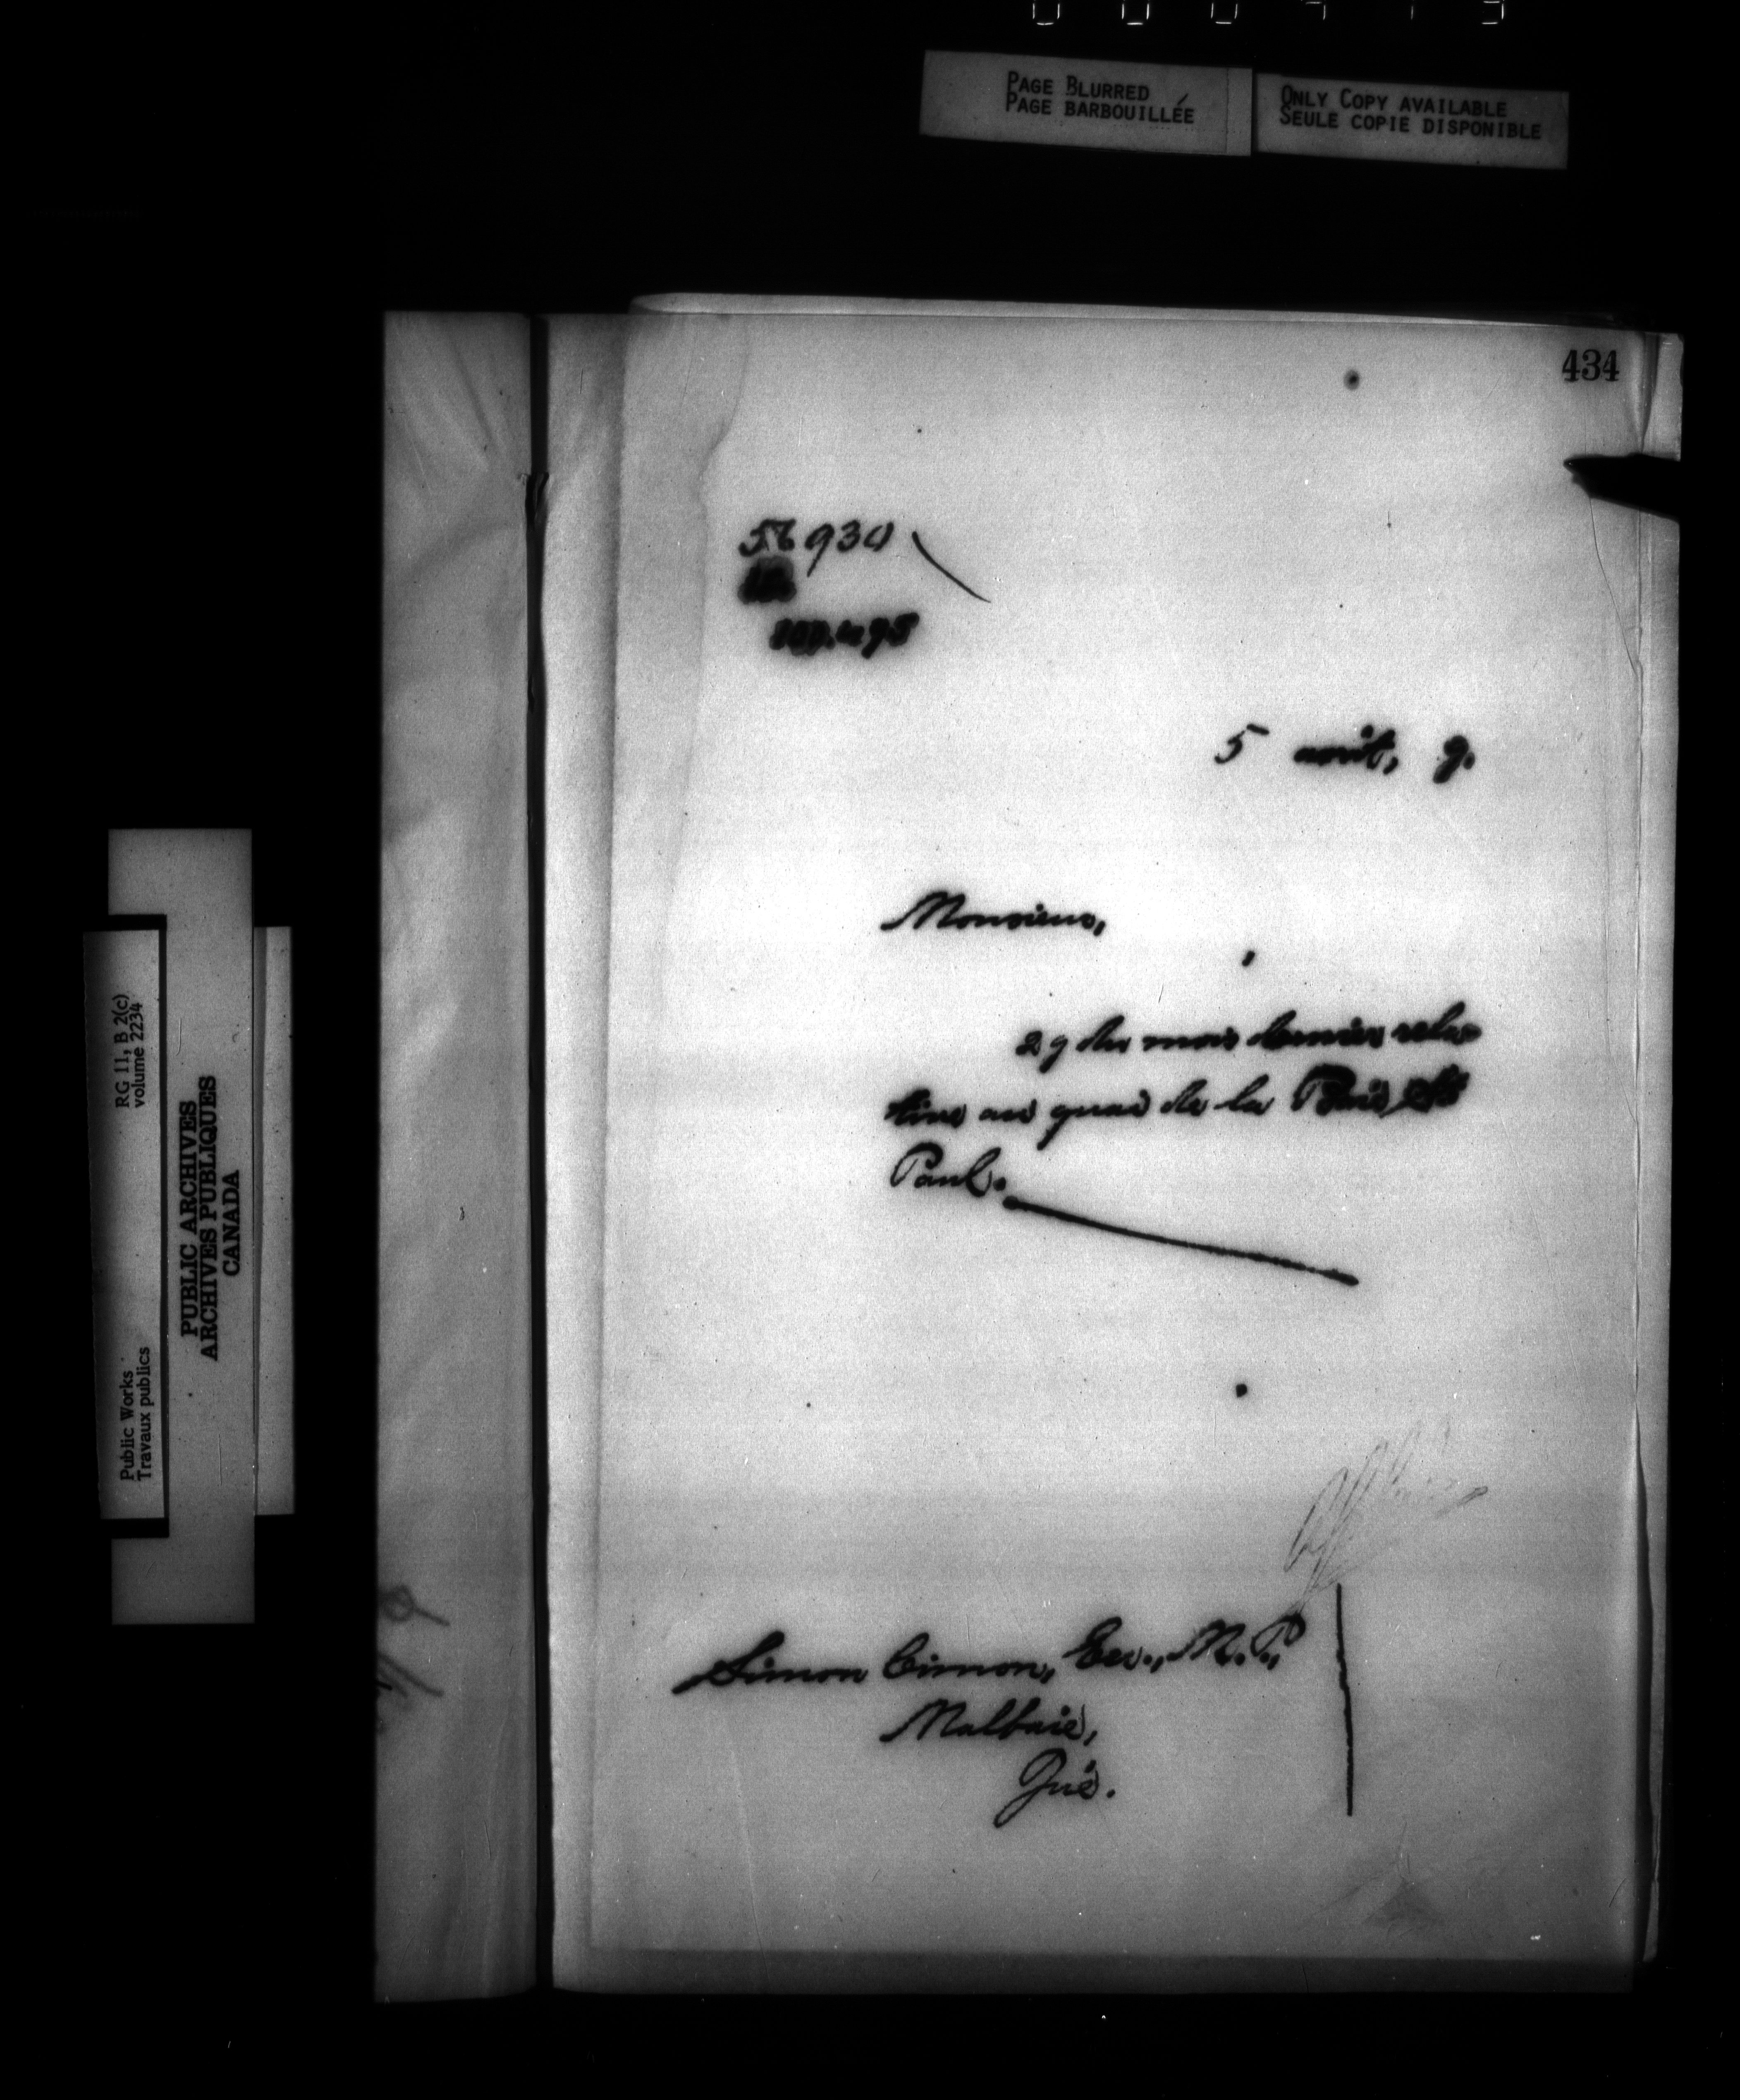 PAGE BLURRED
PAGE BARBOUILLÉE
ONLY COPY AVAILABLE
SEULE COPIE DISPONIBLE
434
56930
5 août, 9.
Monsieur,
29 du mois dernier rela-
tive au quai de la Baie St
Paul.
Simon Cimon, Ecr., M.P.,
Malbaie,
Qué.
RG 11, B 2(c)
volume 2234
PUBLIC ARCHIVES
ARCHIVES PUBLIQUES
CANADA
Public Works
Travaux publics